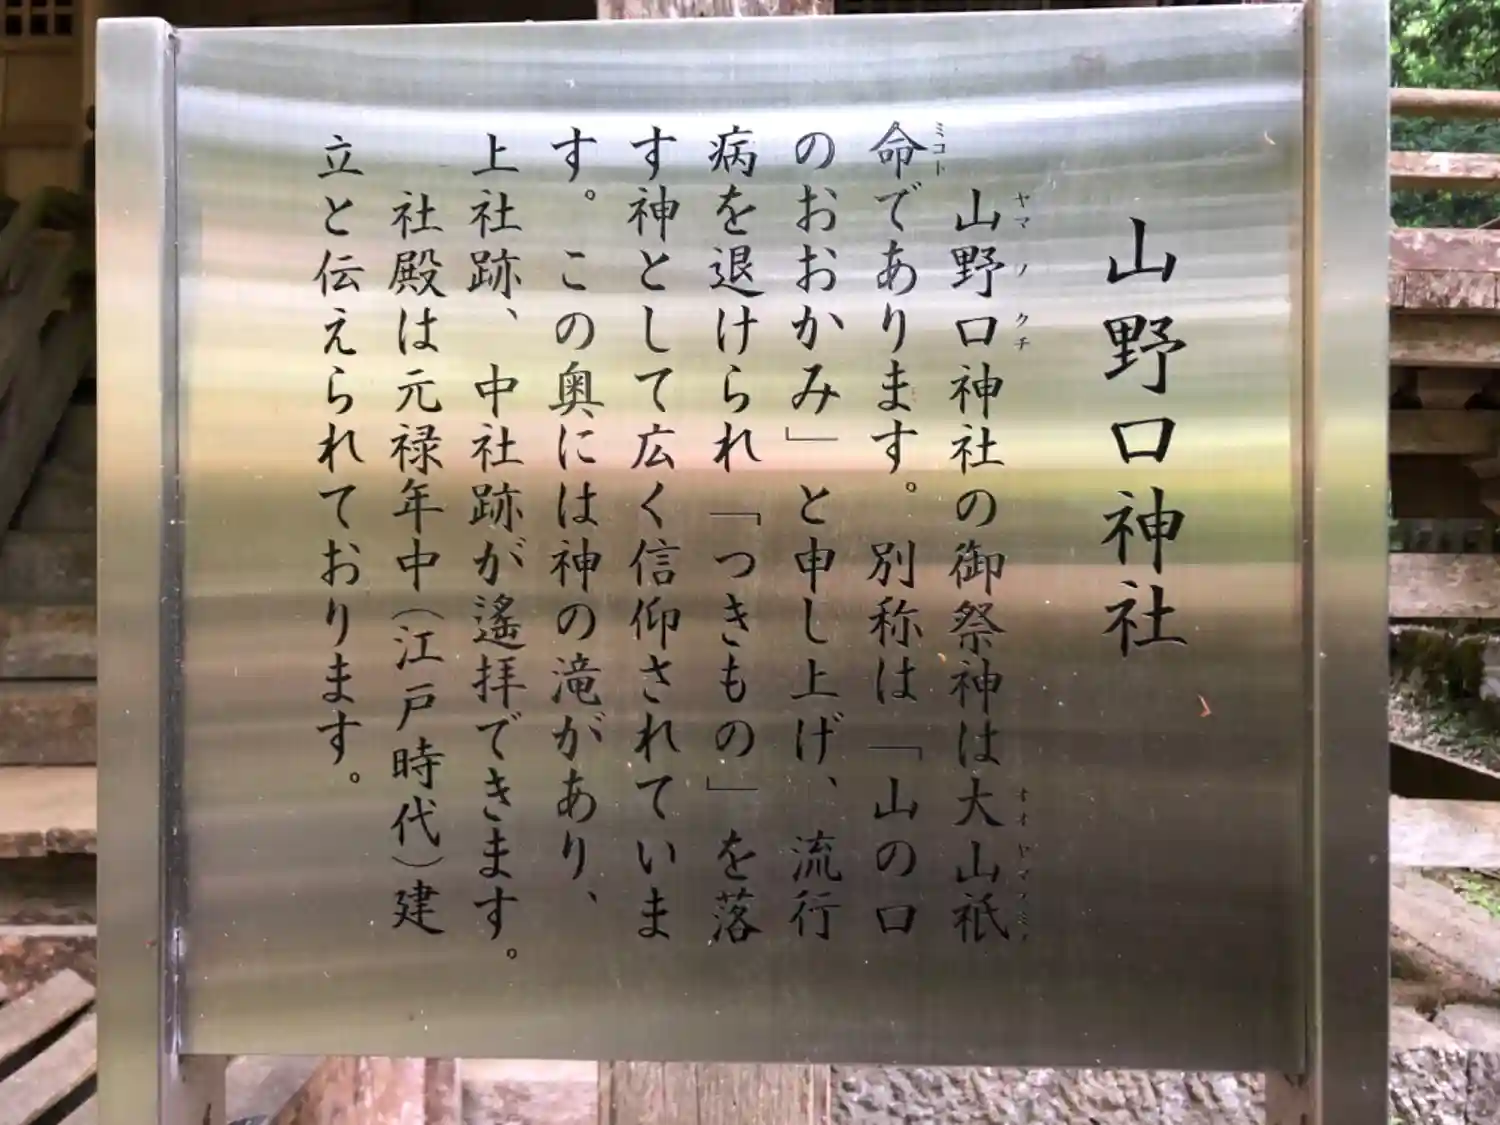 山野口神社
山野口神社の御祭神は大山祇
命であります。別称は「山の口
のおおかみ」と申し上げ、流行
病を退けられ「つきもの」を落
す神として広く信仰されていま
す。この奥には神の滝があり、
上社跡、中社跡が遙拝できます。
社殿は元禄年中(江戸時代)建
立と伝えられております。
ヤマノクチ
オオヤマヅミノ
ミコト